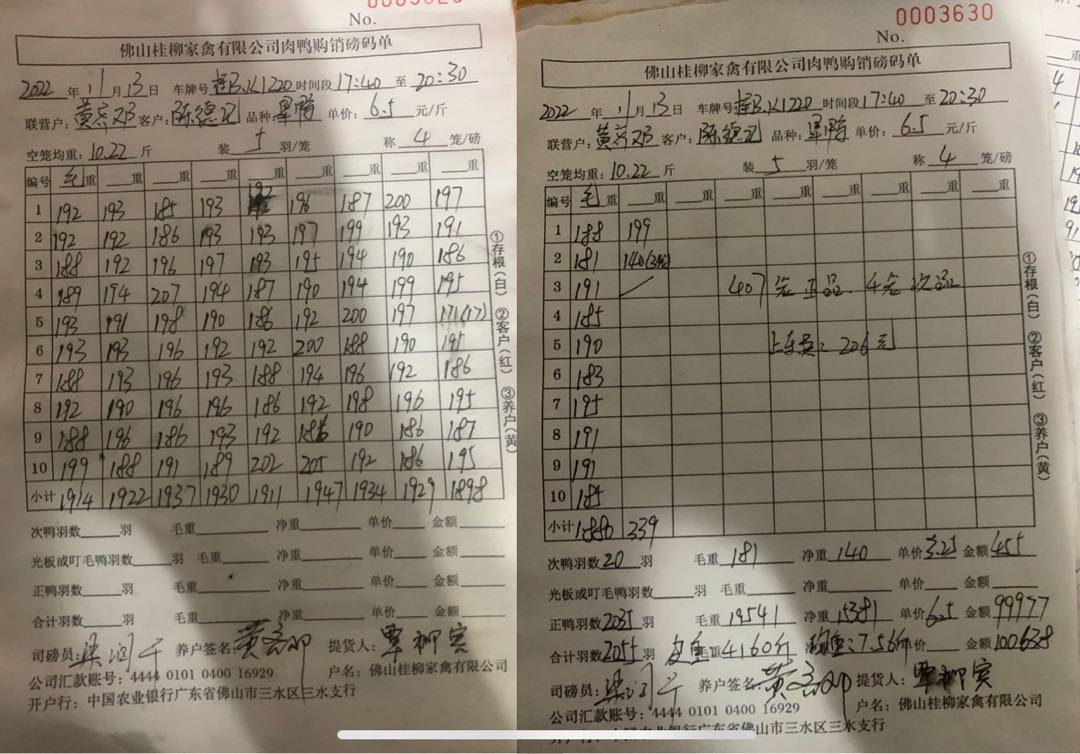 No.
佛山桂柳家禽有限公司肉鸭购销磅码单
2022 年 11 月 13 日 车牌号 K1220 时间段 17:40 至 20:30
联营户: 客户: 陈德 品种: 单价: 6.5 元/斤
空笼均重: 10.22 斤 装 5 羽/笼 称 4 笼/磅
编号 毛重 重 重 重 重 重 重 重 重
1 192 193 185 193 192 196 187 200 197
2 192 192 186 193 193 197 199 193 191
3 188 192 196 197 193 195 194 190 186
4 189 194 207 194 187 190 194 199 195
5 193 191 198 190 186 192 200 197 171(17)
6 193 193 196 192 192 200 188 190 195
7 188 193 196 193 188 194 196 192 186
8 192 190 196 196 186 192 198 196 195
9 188 196 186 193 192 186 190 186 187
10 199 188 191 189 202 205 192 186 195
小计 1914 1922 1937 1930 1911 1947 1934 1929 1898
次鸭羽数 羽 毛重 净重 单价 金额
光板或叮毛鸭羽数 羽 毛重 净重 单价 金额
正鸭羽数 羽 毛重 净重 单价 金额
合计羽数 羽 毛重 净重 单价 金额
司磅员: 养户签名: 黄 提货人: 覃柳宾
公司汇款账号: 4444 0101 0400 16929 户名: 佛山桂柳家禽有限公司
开户行: 中国农业银行广东省佛山市三水区三水支行
①存根(白) ②客户(红) ③养户(黄)
0003630
No.
佛山桂柳家禽有限公司肉鸭购销磅码单
2022 年 11 月 13 日 车牌号 K1220 时间段 17:40 至 20:30
联营户: 客户: 陈德 品种: 单价: 6.5 元/斤
空笼均重: 10.22 斤 装 5 羽/笼 称 4 笼/磅
编号 毛重 重 重 重 重 重 重 重 重
1 188 199
2 181 140(3笼)
3 191 407笼正品、4笼次品
4 185
5 190 上车费: 206元
6 183
7 195
8 191
9 191
10 185
小计 1880 339
次鸭羽数 20 羽 毛重 181 净重 140 单价 3.25 金额 455
光板或叮毛鸭羽数 羽 毛重 净重 单价 金额
正鸭羽数 2035 羽 毛重 19541 净重 15381 单价 6.5 金额 99977
合计羽数 2055 羽 皮重 毛重 4160斤 均重: 7.56斤 单价 金额 100638
司磅员: 养户签名: 黄 提货人: 覃柳宾
公司汇款账号: 4444 0101 0400 16929 户名: 佛山桂柳家禽有限公司
中国农业银行广东省佛山市三水区三水支行
①存根(白) ②客户(红) ③养户(黄)